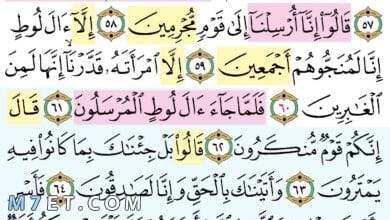 ٥٧ قَالُوٓا۟ إِنَّآ أُرْسِلْنَآ إِلَىٰ قَوْمٍ مُّجْرِمِينَ ٥٨ إِلَّآ ءَالَ لُوطٍ
إِنَّا لَمُنَجُّوهُمْ أَجْمَعِينَ ٥٩ إِلَّا ٱمْرَأَتَهُۥ قَدَّرْنَآ إِنَّهَا لَمِنَ
ٱلْغَٰبِرِينَ ٦٠ فَلَمَّا جَآءَ ءَالَ لُوطٍ ٱلْمُرْسَلُونَ ٦١ قَالَ
إِنَّكُمْ قَوْمٌ مُّنكَرُونَ ٦٢ قَالُوا۟ بَلْ جِئْنَٰكَ بِمَا كَانُوا۟ فِيهِ
يَمْتَرُونَ ٦٣ وَأَتَيْنَٰكَ بِٱلْحَقِّ وَإِنَّا لَصَٰدِقُونَ ٦٤ فَأَسْرِ
M7ET.COM